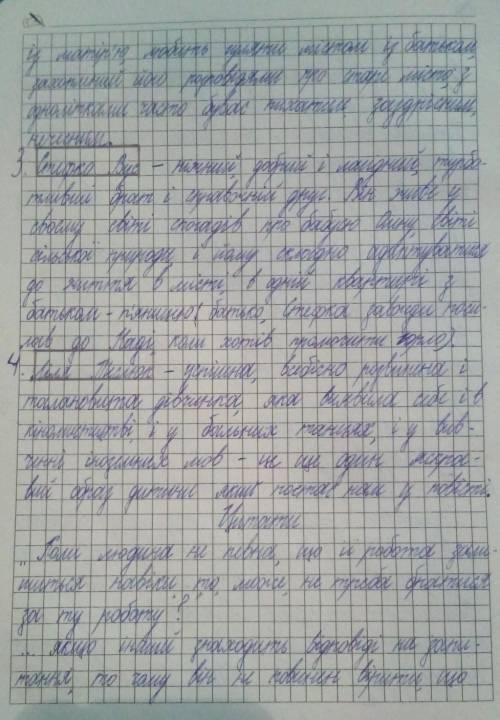 із матір'ю, любить гуляти містом із батьком,
захоплений його розповідями про старе місто, з
однолітками часто буває пихатим, заздрісним,
нечесним.
3. Стефко Вус – ніжний, добрий і лагідний, турбо-
тливий брат і справжній друг. Він живе у
своєму світі спогадів про бабусю Анну, світі
сільської природи, і йому складно адаптуватися
до життя в місті, в одній квартирі з
батьком-п'яницею (батько Стефка завжди поси-
лав до Наді, коли хотів промочити горло).
4. Ліля – успішна, всебічно розвинена і
талановита дівчинка, яка виявила себе і в
кіномистецтві, і у бальних танцях, і у вив-
ченні іноземних мов – це ще один
образ дитини який постає нам у повісті.
Цитати
"Коли людина не певна, що її робота зали-
шиться навіки, то, може, не треба братися
за ту роботу"?
"... якщо інший знаходить відповіді на запи-
тання, то чому він не повинен вірити, що